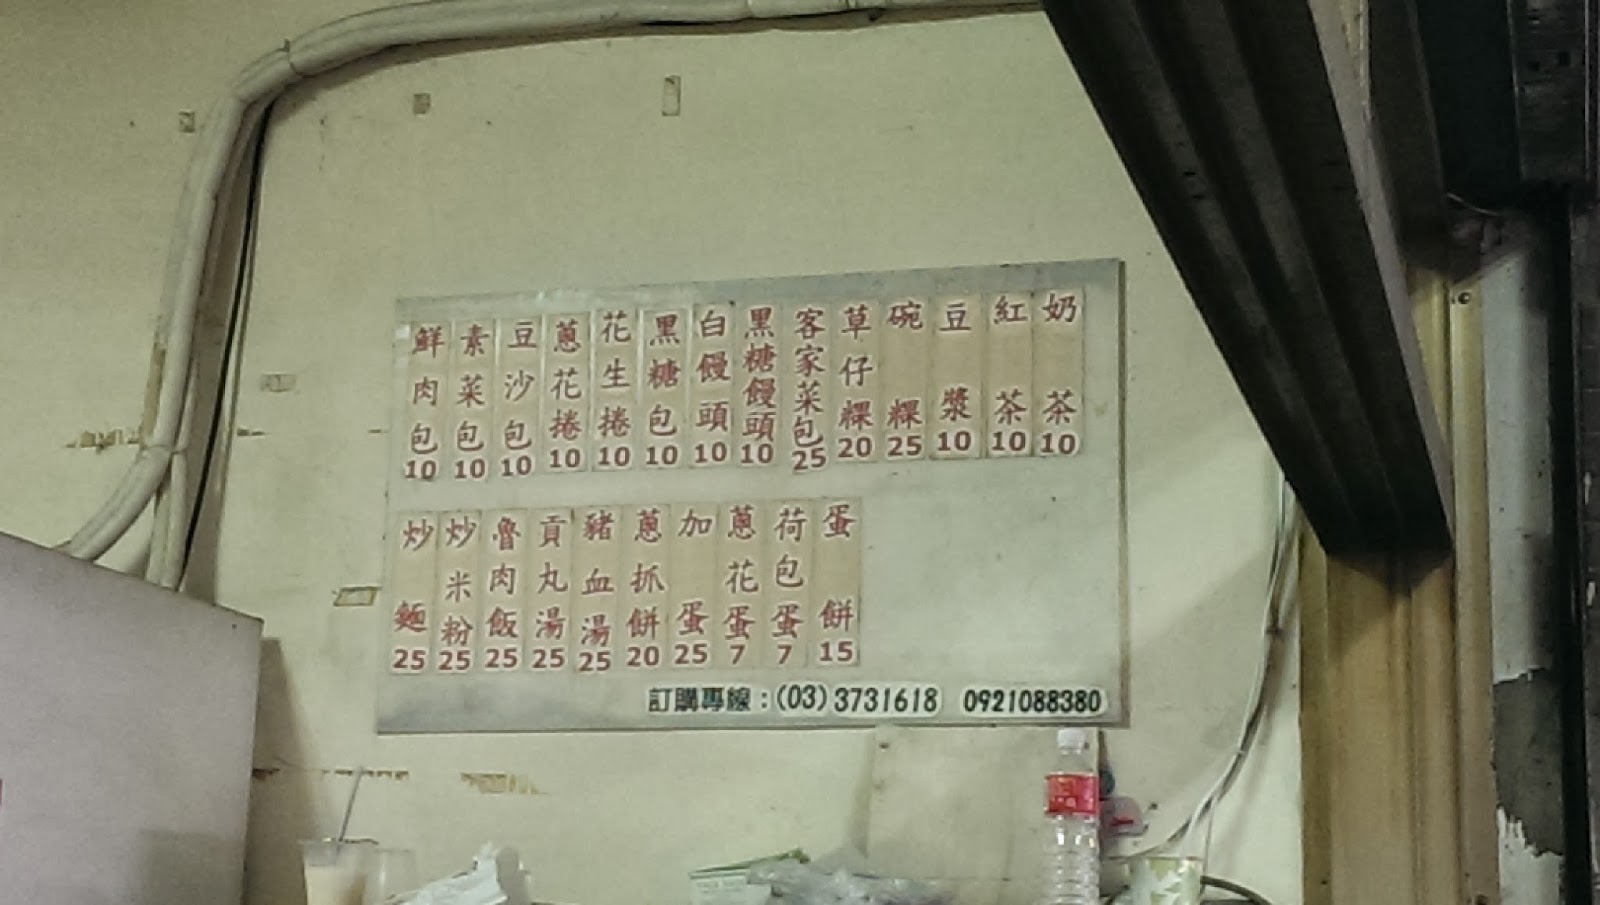 鮮肉包10
素菜包10
豆沙包10
蔥花捲10
花生捲10
黑糖包10
白饅頭10
黑糖饅頭10
客家菜包25
草仔粿20
碗粿25
豆漿10
紅茶10
奶茶10
炒麵25
炒米粉25
魯肉飯25
貢丸湯25
豬血湯25
蔥抓餅20
加蛋25
蔥花蛋7
荷包蛋7
蛋餅15
訂購專線：(03)3731618 0921088380